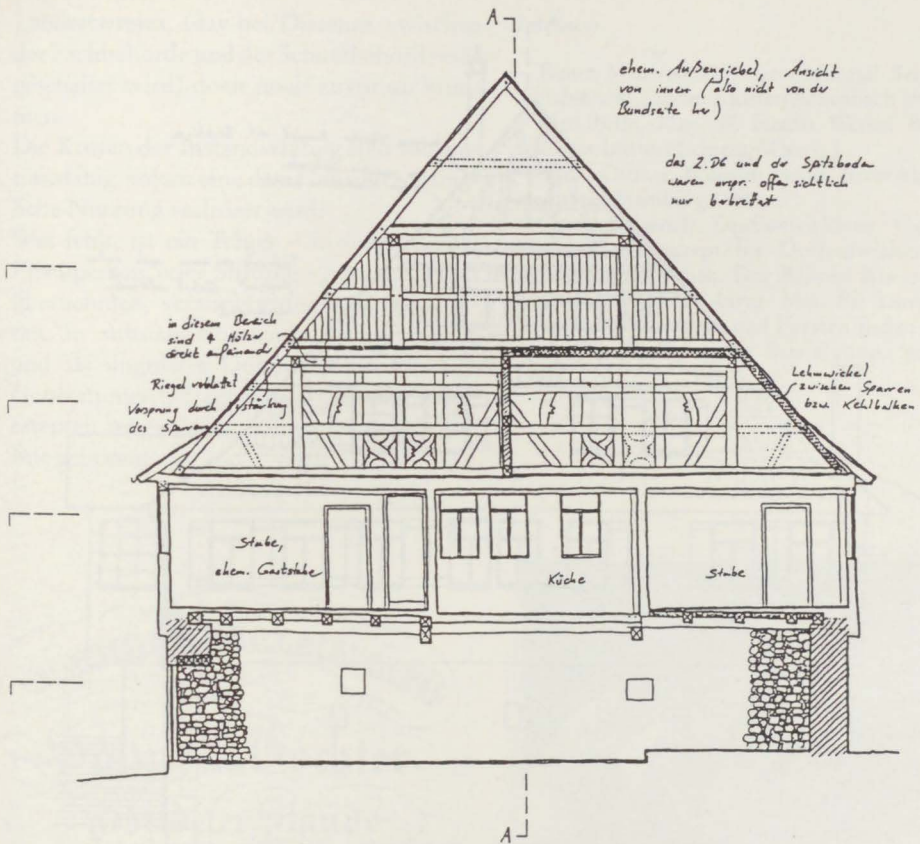 A
ehem. Außengiebel, Ansicht
von innen (also nicht von der
Bundseite her)
das 2.DG und der Spitzboden
waren urspr. offensichtlich
nur bebrettert
in diesem Bereich
sind 4 Hölzer
direkt aufeinand
Riegel verblattet
Vorsprung durch Verstärkung
des Sparren
Lehmwickel
zwischen Sparren
bzw. Kehlbalken
Stube,
ehem. Gaststube
Küche
Stube
A